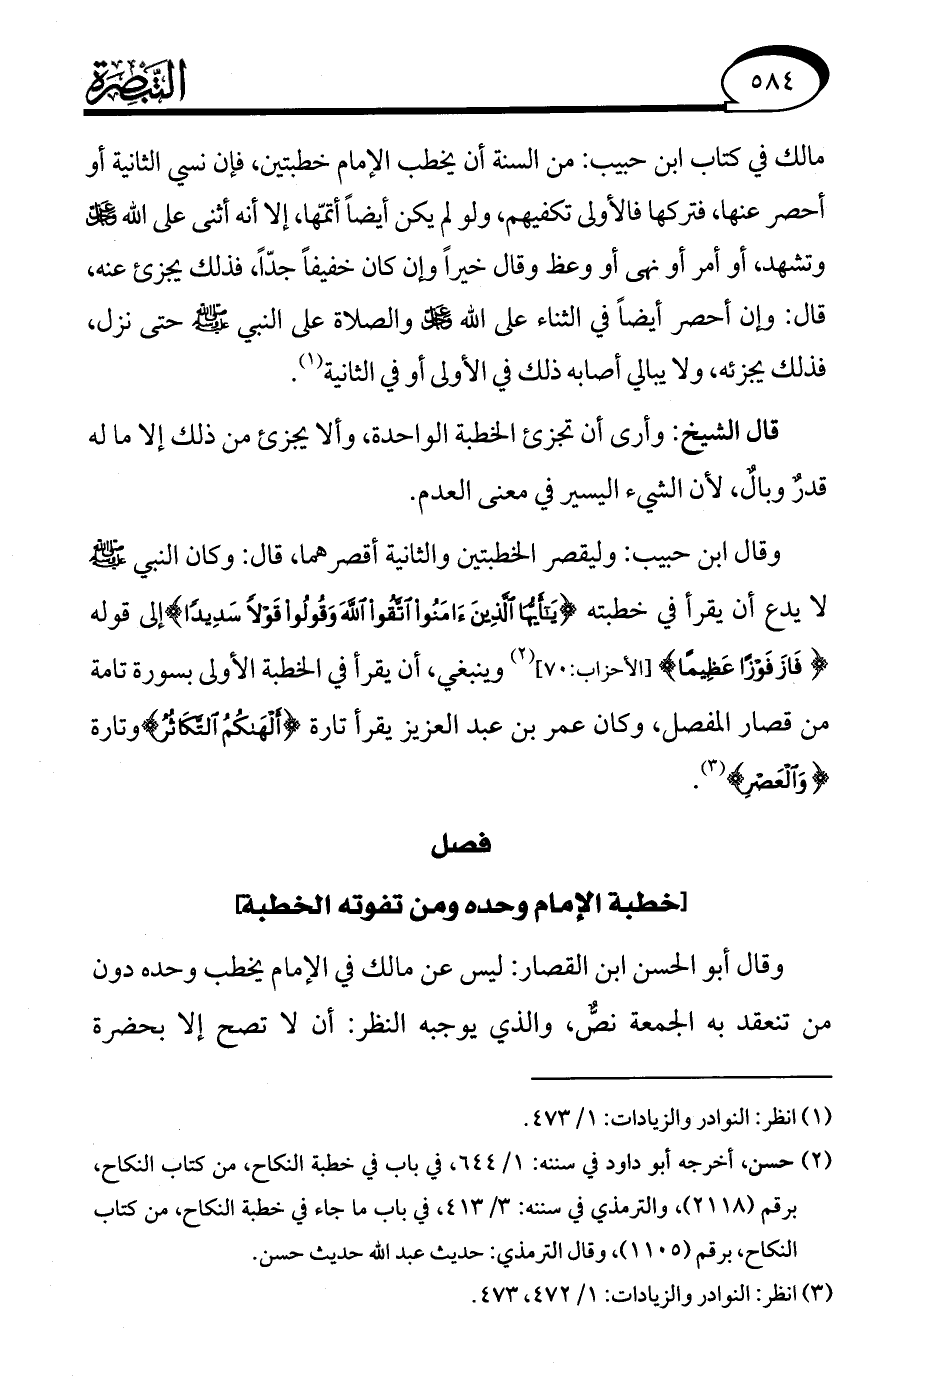 التبصرة
٥٨٤
مالك في كتاب ابن حبيب: من السنة أن يخطب الإمام خطبتين، فإن نسي الثانية أو
أحصر عنها، فتركها فالأولى تكفيهم، ولو لم يكن أيضاً أتمّها، إلا أنه أثنى على الله ﷻ
وتشهد، أو أمر أو نهى أو وعظ وقال خيراً وإن كان خفيفاً جدّاً، فذلك يجزئ عنه،
قال: وإن أحصر أيضاً في الثناء على الله ﷻ والصلاة على النبي ﷺ حتى نزل،
فذلك يجزئه، ولا يبالي أصابه ذلك في الأولى أو في الثانية(١).
قال الشيخ: وأرى أن تجزئ الخطبة الواحدة، وألا يجزئ من ذلك إلا ما له
قدرٌ وبالٌ، لأن الشيء اليسير في معنى العدم.
وقال ابن حبيب: وليقصر الخطبتين والثانية أقصرهما، قال: وكان النبي ﷺ
لا يدع أن يقرأ في خطبته ﴿يَٰٓأَيُّهَا ٱلَّذِينَ ءَامَنُوا۟ ٱتَّقُوا۟ ٱللَّهَ وَقُولُوا۟ قَوْلًا سَدِيدًا﴾إلى قوله
﴿فَازَ فَوْزًا عَظِيمًا﴾ [الأحزاب: ٧٠](٢) وينبغي، أن يقرأ في الخطبة الأولى بسورة تامة
من قصار المفصل، وكان عمر بن عبد العزيز يقرأ تارة ﴿أَلْهَىٰكُمُ ٱلتَّكَاثُرُ﴾وتارة
﴿وَٱلْعَصْرِ﴾(٣).
فصل
[خطبة الإمام وحده ومن تفوته الخطبة]
وقال أبو الحسن ابن القصار: ليس عن مالك في الإمام يخطب وحده دون
من تنعقد به الجمعة نصٌّ، والذي يوجبه النظر: أن لا تصح إلا بحضرة
(١) انظر: النوادر والزيادات: ١/ ٤٧٣.
(٢) حسن، أخرجه أبو داود في سننه: ١/ ٦٤٤، في باب في خطبة النكاح، من كتاب النكاح،
برقم (٢١١٨)، والترمذي في سننه: ٣/ ٤١٣، في باب ما جاء في خطبة النكاح، من كتاب
النكاح، برقم (١١٠٥)، وقال الترمذي: حديث عبد الله حديث حسن.
(٣) انظر: النوادر والزيادات: ١/ ٤٧٢، ٤٧٣.